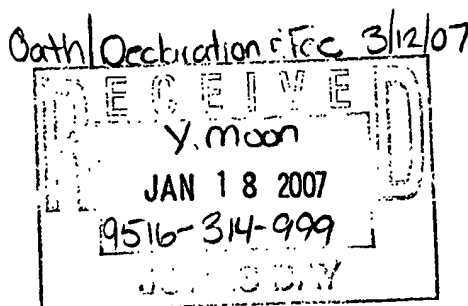 Oath/Declaration & Fee 3/12/07
RECEIVED
Y. Moon
JAN 18 2007
9516-314-999
JONES DAY